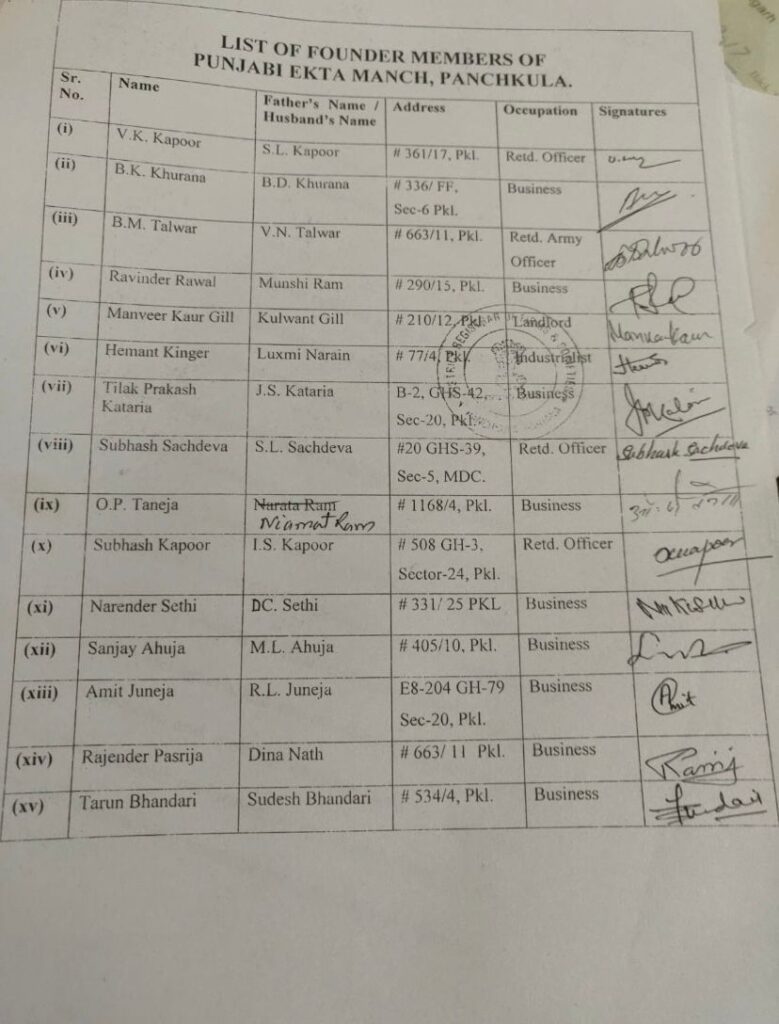 LIST OF FOUNDER MEMBERS OF
PUNJABI EKTA MANCH, PANCHKULA.
Sr. No. Name Father's Name / Husband's Name Address Occupation Signatures
(i) V.K. Kapoor S.L. Kapoor # 361/17, Pkl. Retd. Officer
(ii) B.K. Khurana B.D. Khurana # 336/ FF, Sec-6 Pkl. Business
(iii) B.M. Talwar V.N. Talwar # 663/11, Pkl. Retd. Army Officer
(iv) Ravinder Rawal Munshi Ram # 290/15, Pkl. Business
(v) Manveer Kaur Gill Kulwant Gill # 210/12, Pkl. Landlord
(vi) Hemant Kinger Luxmi Narain # 77/4, Pkl. Industrialist
(vii) Tilak Prakash Kataria J.S. Kataria B-2, GHS-42, Sec-20, Pkl. Business
(viii) Subhash Sachdeva S.L. Sachdeva #20 GHS-39, Sec-5, MDC. Retd. Officer Subhash Sachdeva
(ix) O.P. Taneja Narata Ram Niamat Ram # 1168/4, Pkl. Business
(x) Subhash Kapoor I.S. Kapoor # 508 GH-3, Sector-24, Pkl. Retd. Officer
(xi) Narender Sethi DC. Sethi # 331/ 25 PKL Business
(xii) Sanjay Ahuja M.L. Ahuja # 405/10, Pkl. Business
(xiii) Amit Juneja R.L. Juneja E8-204 GH-79 Sec-20, Pkl. Business Amit
(xiv) Rajender Pasrija Dina Nath # 663/ 11 Pkl. Business
(xv) Tarun Bhandari Sudesh Bhandari # 534/4, Pkl. Business